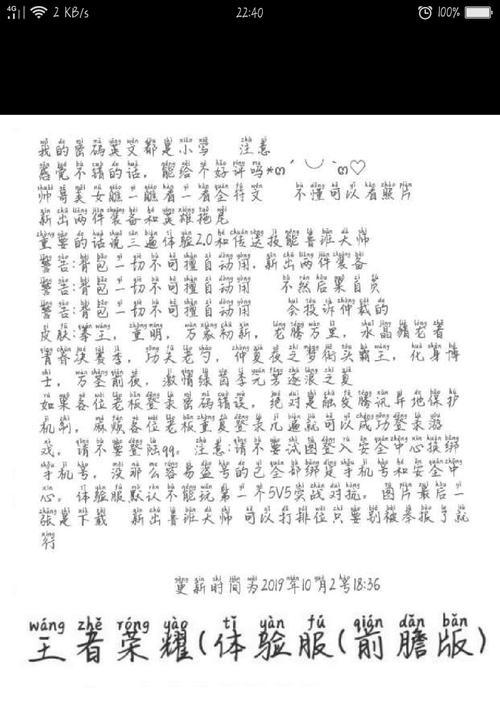 4G 2 KB/s 22:40 100%
我的密码英文都是小写 注意
感觉不错的话，能给个好评吗*๓´╰╯`๓♡
帅哥美女瞧一瞧看一看全符文 不懂可以看照片
新出两件装备和英雄拖尾
重要的话说三遍体验2.0和传送技能鲁班大师
警告:背包一切不可擅自动用，新出两件装备
警告:背包一切不可擅自动用 不然后果自负
警告:背包一切不可擅自动用 会投诉仲裁的
皮肤:拳王，重明，万象初新，老腾万里，水晶猎老者
青春决赛季，功夫老勺，仲夏夜之梦街头霸王，化身博
士，万圣前夜，激情绿茵李元芳逐浪之夏
如果各位老板登录密码错误，绝对是触发腾讯异地保护
机制，麻烦各位老板重复登录几遍就可以成功登录游
戏，请不要登陆qq。注意:请不要试图登入安全中心换绑
手机号，没那么容易盗号的已全部绑定手机号和安全中
心。体验服默认不能玩第一个5V5实战对抗。图片最后一
张是下载 新出鲁班大师 可以打排位只要别被举报了就
行
更新时间为2019年10月2号18:36
wáng zhě róng yào tǐ yàn fú qián dān bǎn
王者荣耀(体验服(前瞻版)